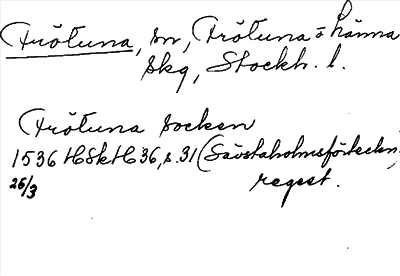 Frötuna, sn, Frötuna o Länna
skg, Stockh. l.
Frötuna socken
1536 HSkH 36, s. 31 (Sävstaholmsförteckn,
26/3 regest.